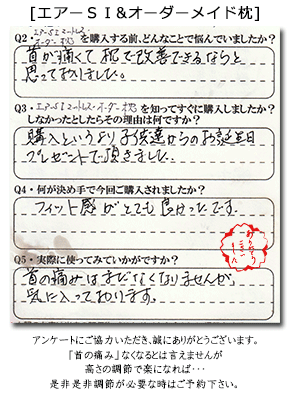 [エアーＳＩ&オーダーメイド枕]
Q2・エアーSIマットレス・オーダー枕を購入する前、どんなことで悩んでいましたか？
首が痛くて枕で改善できるならと
思っておりました。
Q3・エアーSIマットレス・オーダー枕を知ってすぐに購入しましたか？
しなかったとしたらその理由は何ですか？
購入というより子供達からのお誕生日
プレゼントで頂きました。
Q4・何が決め手で今回ご購入されましたか？
フィット感がとても良かったです。
Q5・実際に使ってみていかがですか？
首の痛みはまだなくなりませんが、
気に入っております。
アンケートにご協力いただき、誠にありがとうございます。
「首の痛み」なくなるとは言えませんが
高さの調節で楽になれば・・・
是非是非調節が必要な時はご予約下さい。